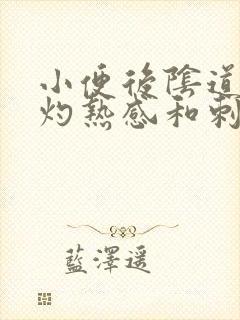 小便後陰道
灼熱感和刺
藍澤遥